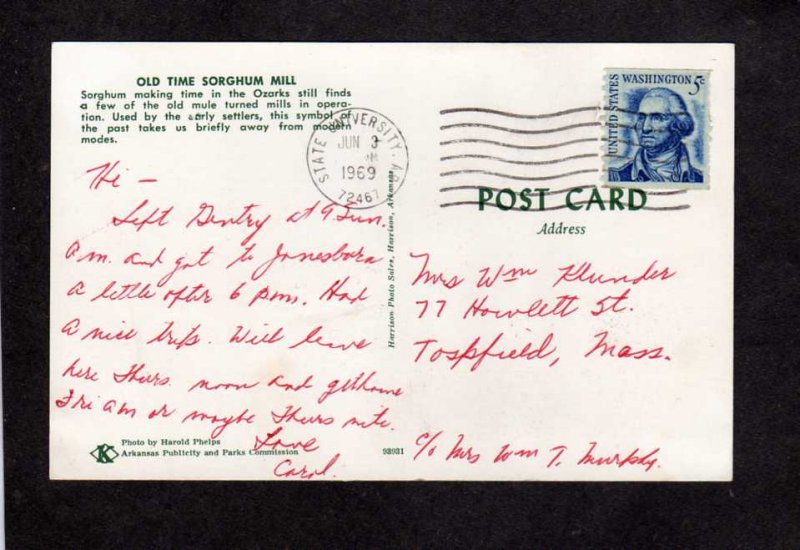 OLD TIME SORGHUM MILL
Sorghum making time in the Ozarks still finds
a few of the old mule turned mills in opera-
tion. Used by the early settlers, this symbol of
the past takes us briefly away from modern
modes.
STATE UNIVERSITY, ARK
JUN 3
1969
72467
UNITED STATES
WASHINGTON 5c
POST CARD
Address
Hi —
Left Gentry at 9 Sun.
a.m. and got to Jonesboro
a little after 6 p.m. Had
a nice trip. Will leave
here Thurs. noon and get home
Fri am or maybe Thurs nite.
Love
Carol.
Mrs Wm Klunder
77 Howlett St.
Topsfield, Mass.
c/o Mrs Wm T. Murphy.
Harrison Photo Sales, Harrison, Arkansas
K
Photo by Harold Phelps
Arkansas Publicity and Parks Commission
93931